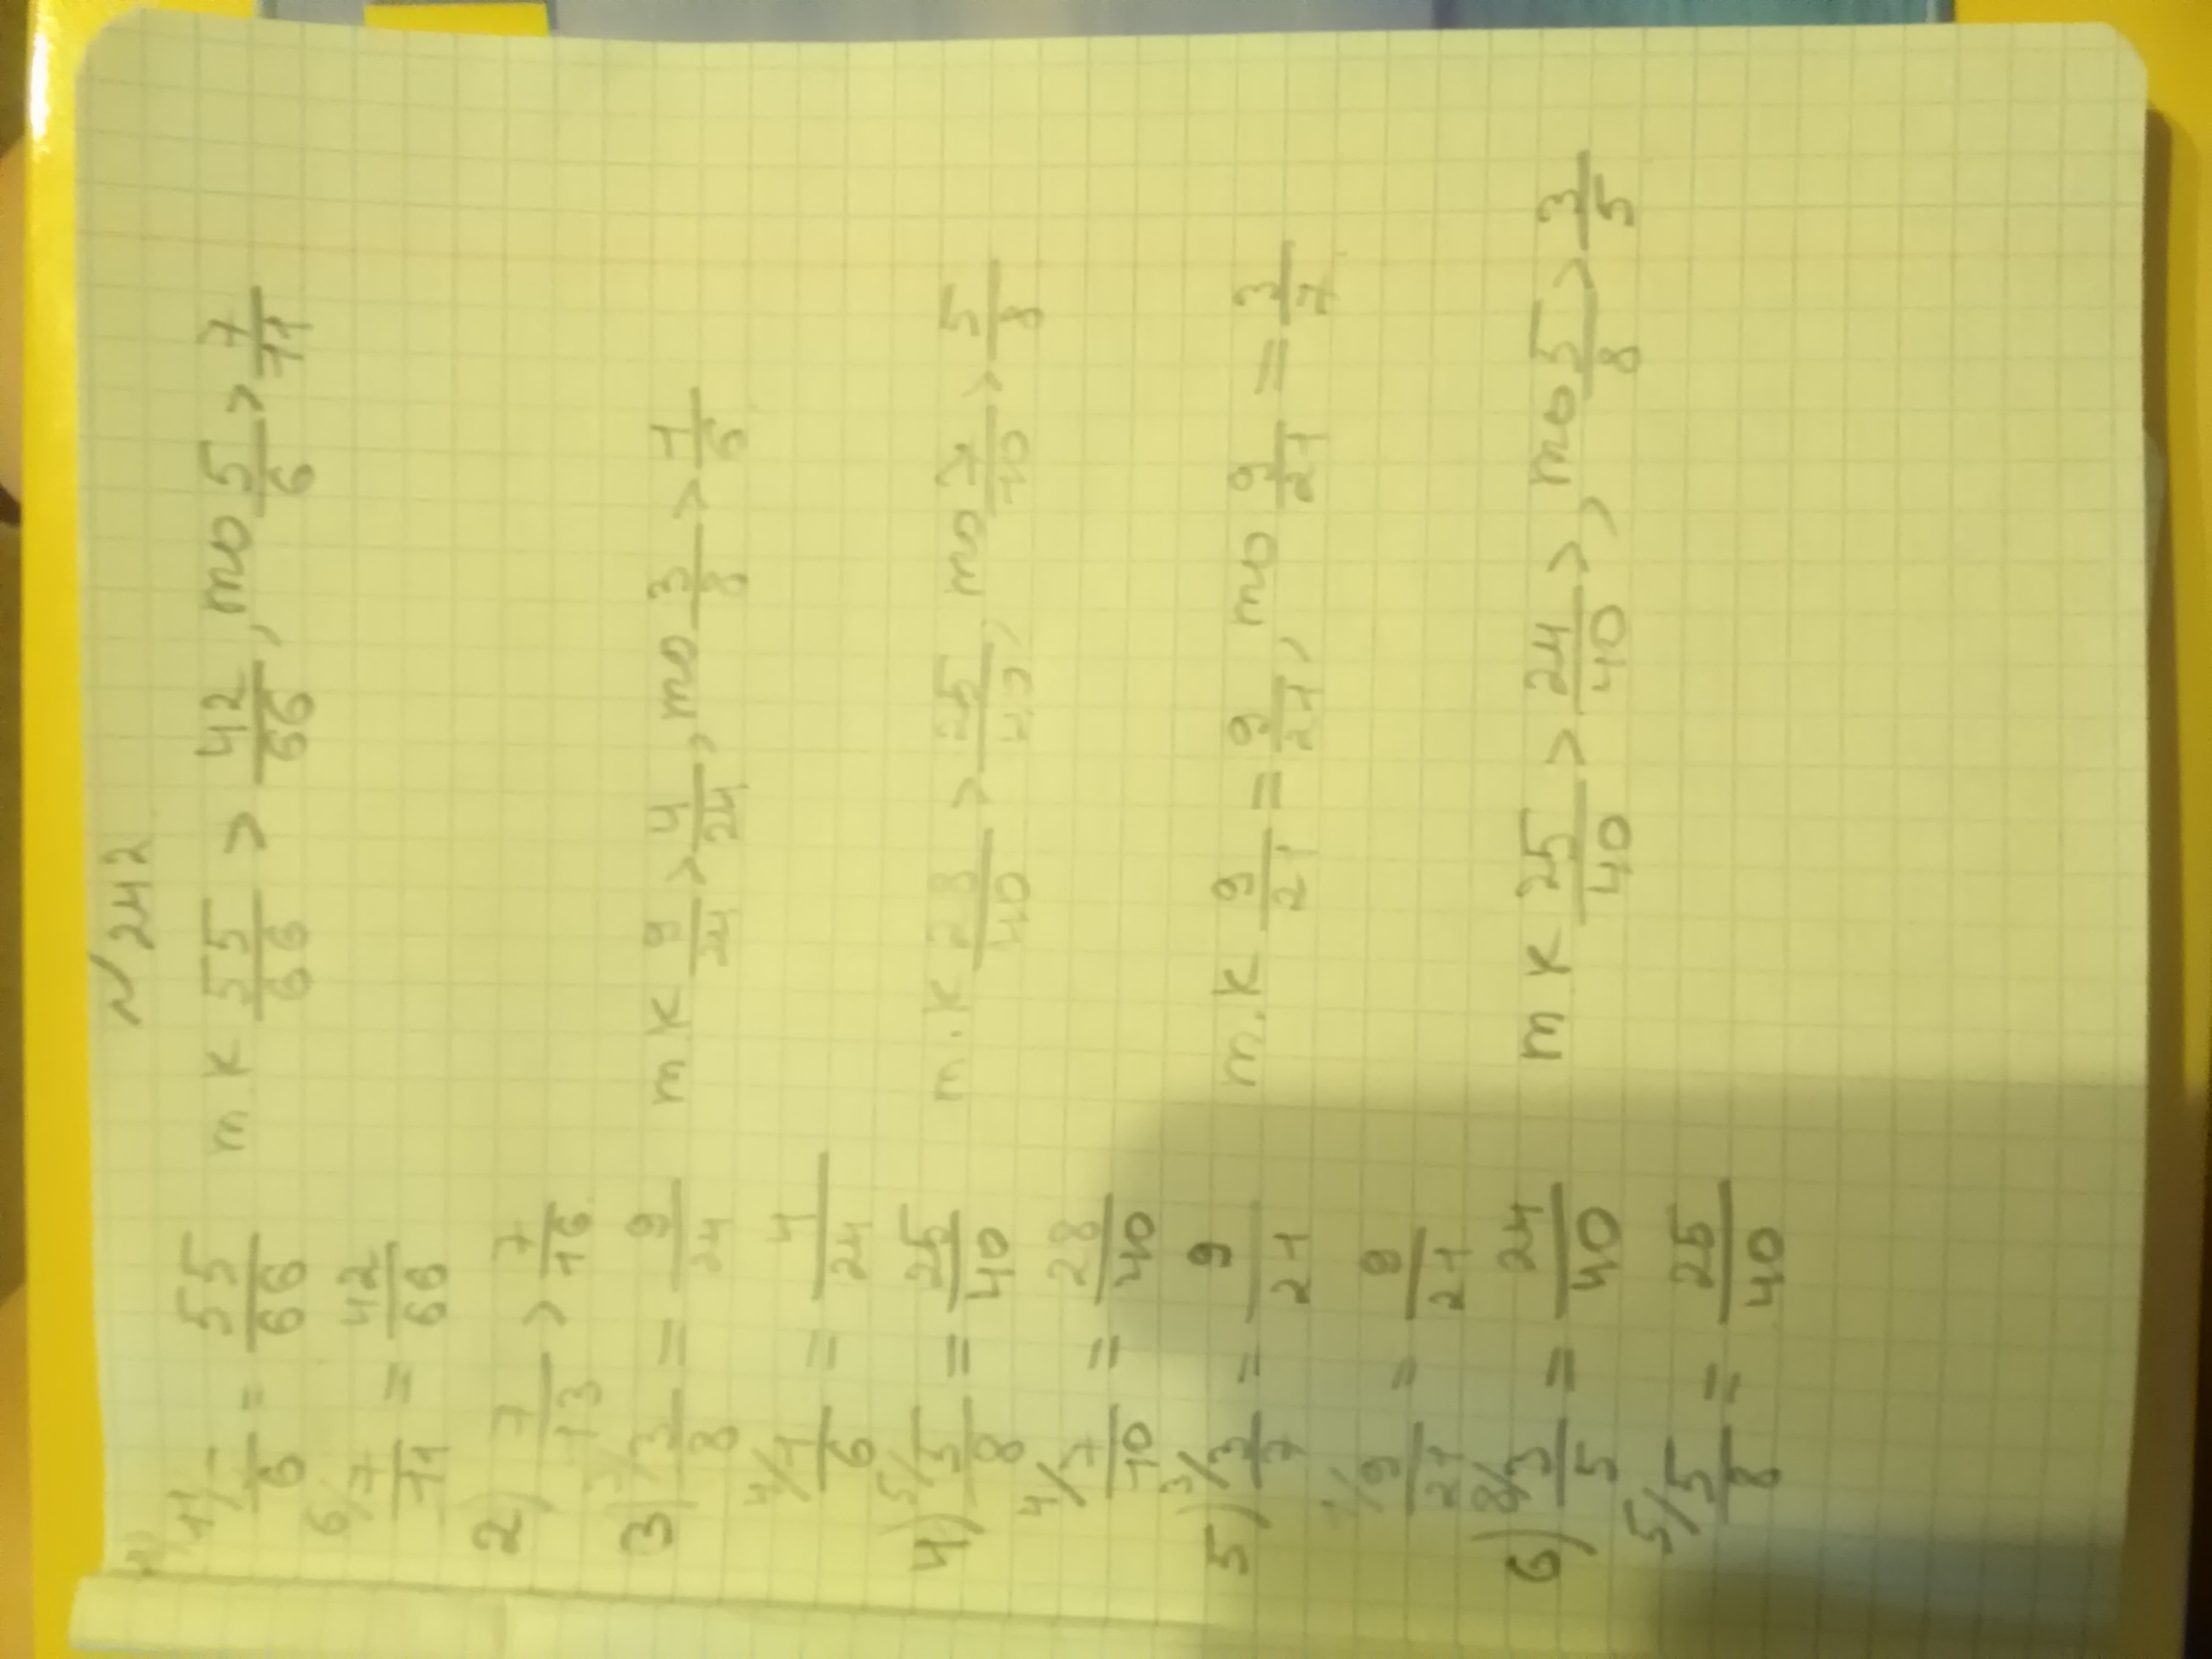 N 242
1) 11/5/6 = 55/66 т.к 55/66 > 42/66, то 5/6 > 7/11
6/7/11 = 42/66
2) 7/13 > 7/16.
3) 3/3/8 = 9/24 т.к 9/24 > 4/24, то 3/8 > 1/6
4/1/6 = 4/24
4) 5/5/8 = 25/40 т.к 28/40 > 25/40, то 7/10 > 5/8
4/7/10 = 28/40
5) 3/3/7 = 9/21 т.к 9/21 = 9/21, то 9/21 = 3/7
1/9/21 = 9/21
6) 8/3/5 = 24/40 т к 25/40 > 24/40 >, то 5/8 > 3/5
5/5/8 = 25/40